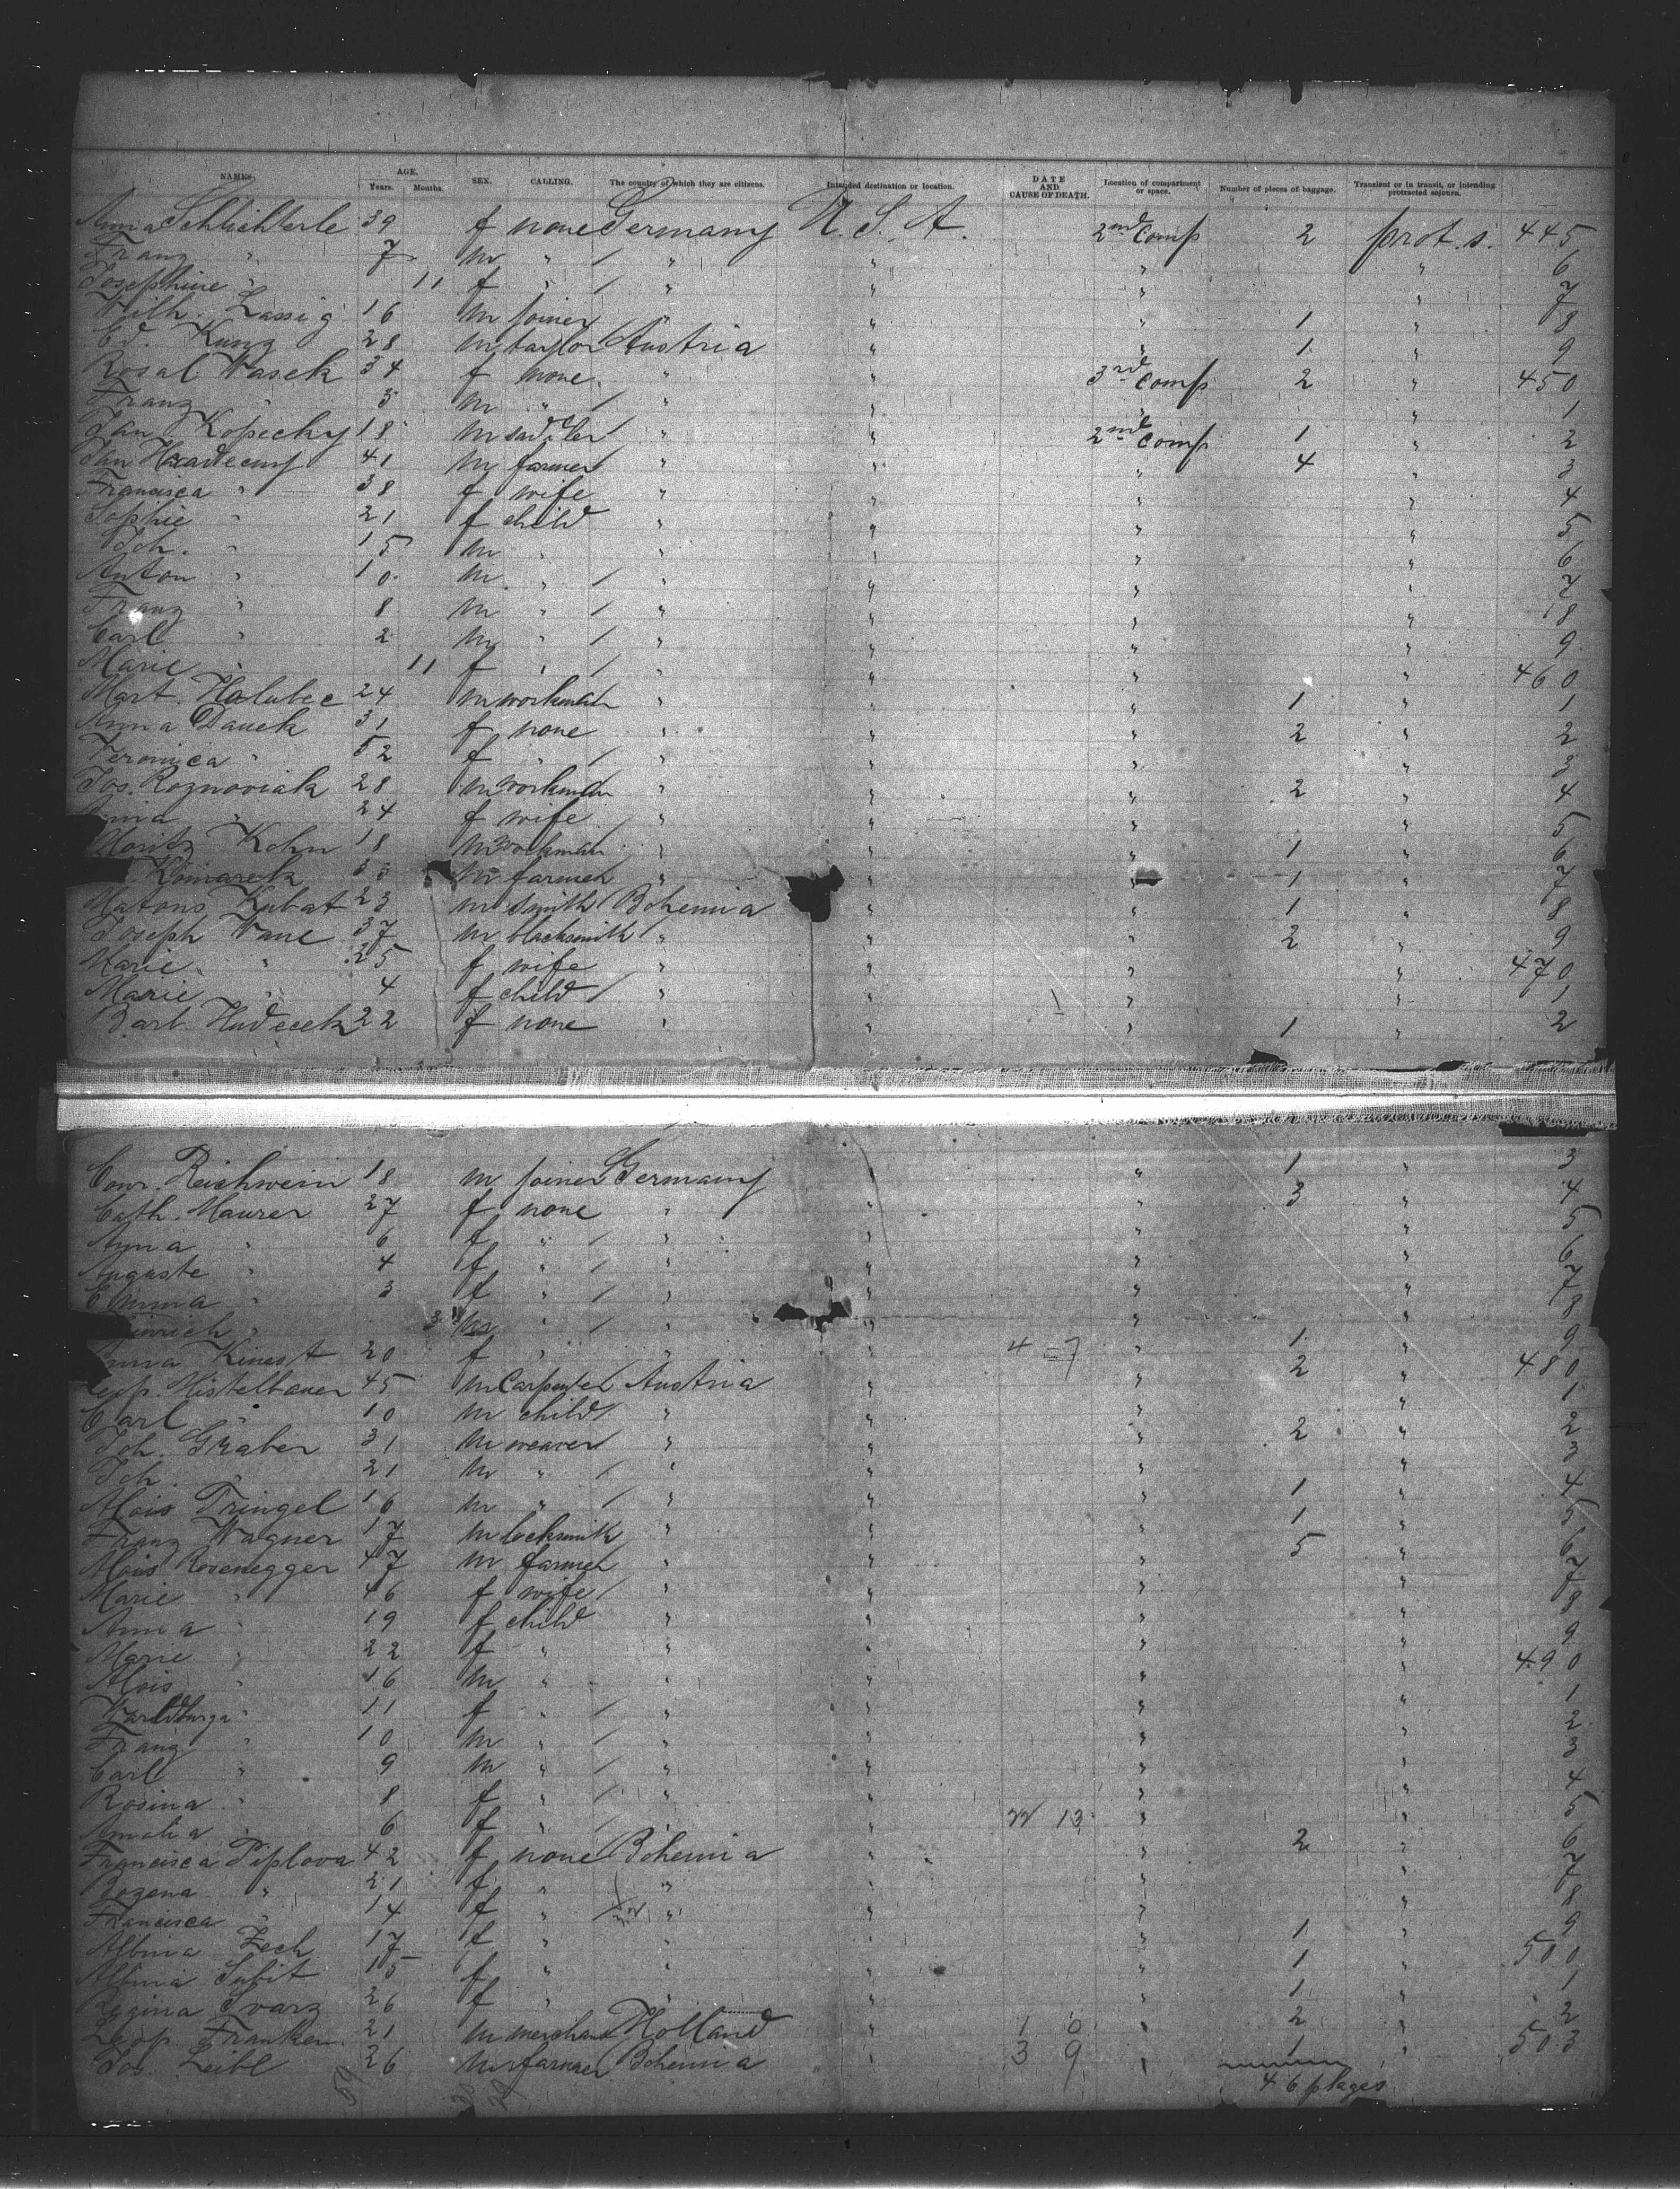 NAMES. AGE. Years. Months. SEX. CALLING. The country of which they are citizens. Intended destination or location. DATE AND CAUSE OF DEATH. Location of compartment or space. Number of pieces of baggage. Transient or in transit, or intending protracted sojourn.
Anna Schlichterle 39 f none Germany U. S. A. 2nd comp 2 prot. s. 445
Franz " 7 m " / " " " " 6
Josephine " 11 f " / " " " " 7
Wilh. Lassig 16 m joiner " " " 1 " 8
Ed. Kunz 28 m taylor Austria " " 1 " 9
Rosal. Wasek 34 f none " " 3rd comp 2 " 450
Franz " 3 m " / " " " " 1
Jan Kopecky 18 m sadler / " " 2nd comp 1 " 2
Jan Hradecny 41 m farmer " " " 4 " 3
Francisca " 38 f wife " " " " 4
Sophie " 21 f child " " " " 5
Joh. " 15 m " " " " " 6
Anton " 10 m " / " " " " 7
Franz " 8 m " / " " " " 8
Carl " 2 m " / " " " " 9
Marie " 11 f " / " " " " 460
Mart. Holubec 24 m workman " " " 1 " 1
Anna Dauek 31 f none " " " 2 " 2
Veronica " 52 f " / " " " " 3
Jos. Roznoviak 28 m workman " " " 2 " 4
24 f wife " " " " 5
Moritz Kohn 18 m workman " " " 1 " 6
Komarek 33 m farmer " " " 1 " 7
Matons Kubat 23 m smith Bohemia " " 1 " 8
Joseph Vane 37 m blacksmith " " " 2 " 9
Marie " 25 f wife " " " " 470
Marie " 4 f child / " " " " 1
Barb. Hudecek 22 f none " " " 1 " 2
Conr. Reichwein 18 m joiner Germany " " 1 " 3
Cath. Maurer 27 f none " " " 3 " 4
Anna " 6 f " / " " " " 5
Auguste " 4 f " / " " " " 6
Emma " 3 f " / " " " " 7
" 3 " / " " " " 8
Kinest 20 f " " " 4 = 7 " 1 " 9
Leop. Mistelbauer 45 m Carpenter Austria " " 2 " 480
Carl " 10 m child / " " " " 1
Joh. Graber 31 m weaver " " " 2 " 2
Joh. " 21 m " / " " " " 3
Alois Tringel 16 m " / " " " 1 " 4
Franz Wagner 17 m locksmith " " " 1 " 5
Alois Rosenegger 47 m farmer " " " 5 " 6
Marie " 46 f wife / " " " " 7
Anna " 19 f child " " " " 8
Marie " 22 f " " " " " 9
Alois " 16 m " " " " " 490
11 f " / " " " " 1
Franz " 10 m " / " " " " 2
Carl " 9 m " / " " " " 3
Rosina " 8 f " / " " " " 4
Amalia " 6 f " / " " 13 " " 5
Francisca Piplova 42 f none Bohemia " " 2 " 6
Bozena " 21 f " " " " " 7
Francisca " 14 f " " " " " 8
Albina Zech 17 f " " " " 1 " 9
Albina Subit 15 f " " " " 1 " 500
Regina Svarz 26 f " " " " 1 " 1
Leop. Franken 21 m merchant Holland " 1 0 " 2 " 2
Jos. Leibl 26 m farmer Bohemia " 3 9 " 1 " 503
46 plages